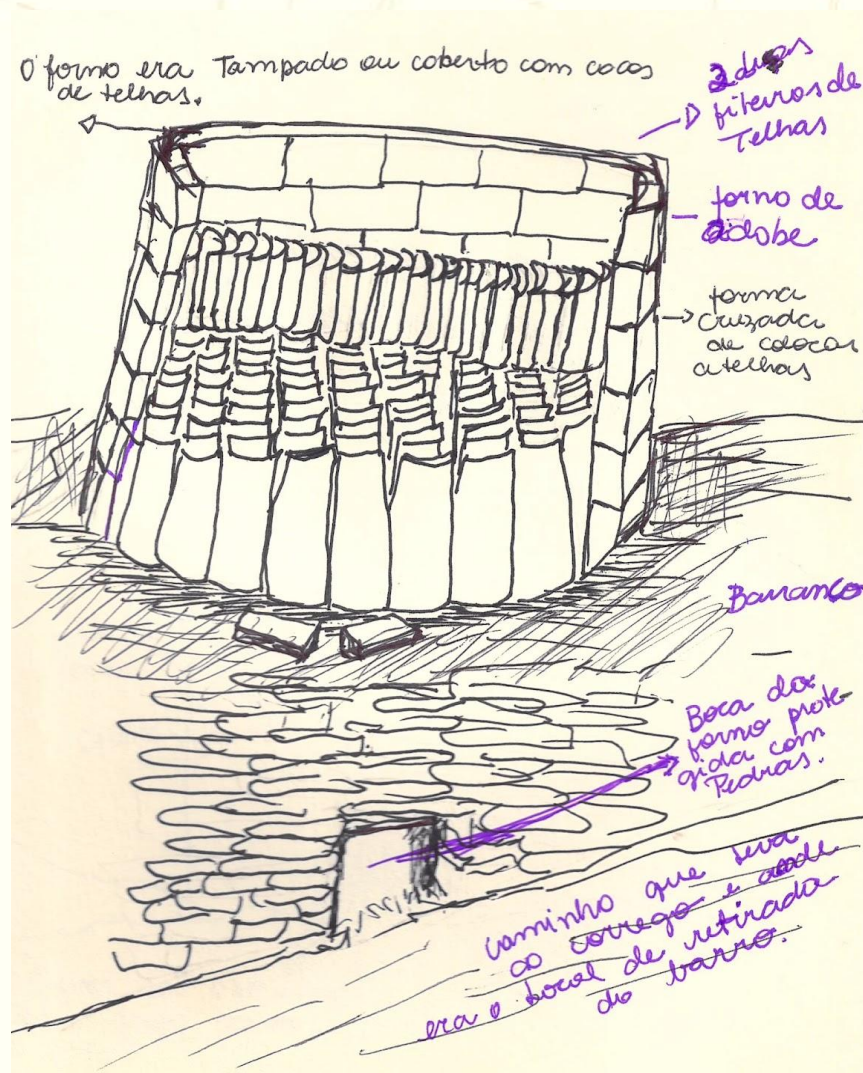 O forno era Tampado ou coberto com cacos
de telhas.
duas
fiteiros de
Telhas
forno de
adobe
forma
cruzada
de colocar
a telhas
Barranco
Boca do
forno prote-
gida com
Pedras.
caminho que leva
ao corrego e onde
era o local de retirada
do barro.